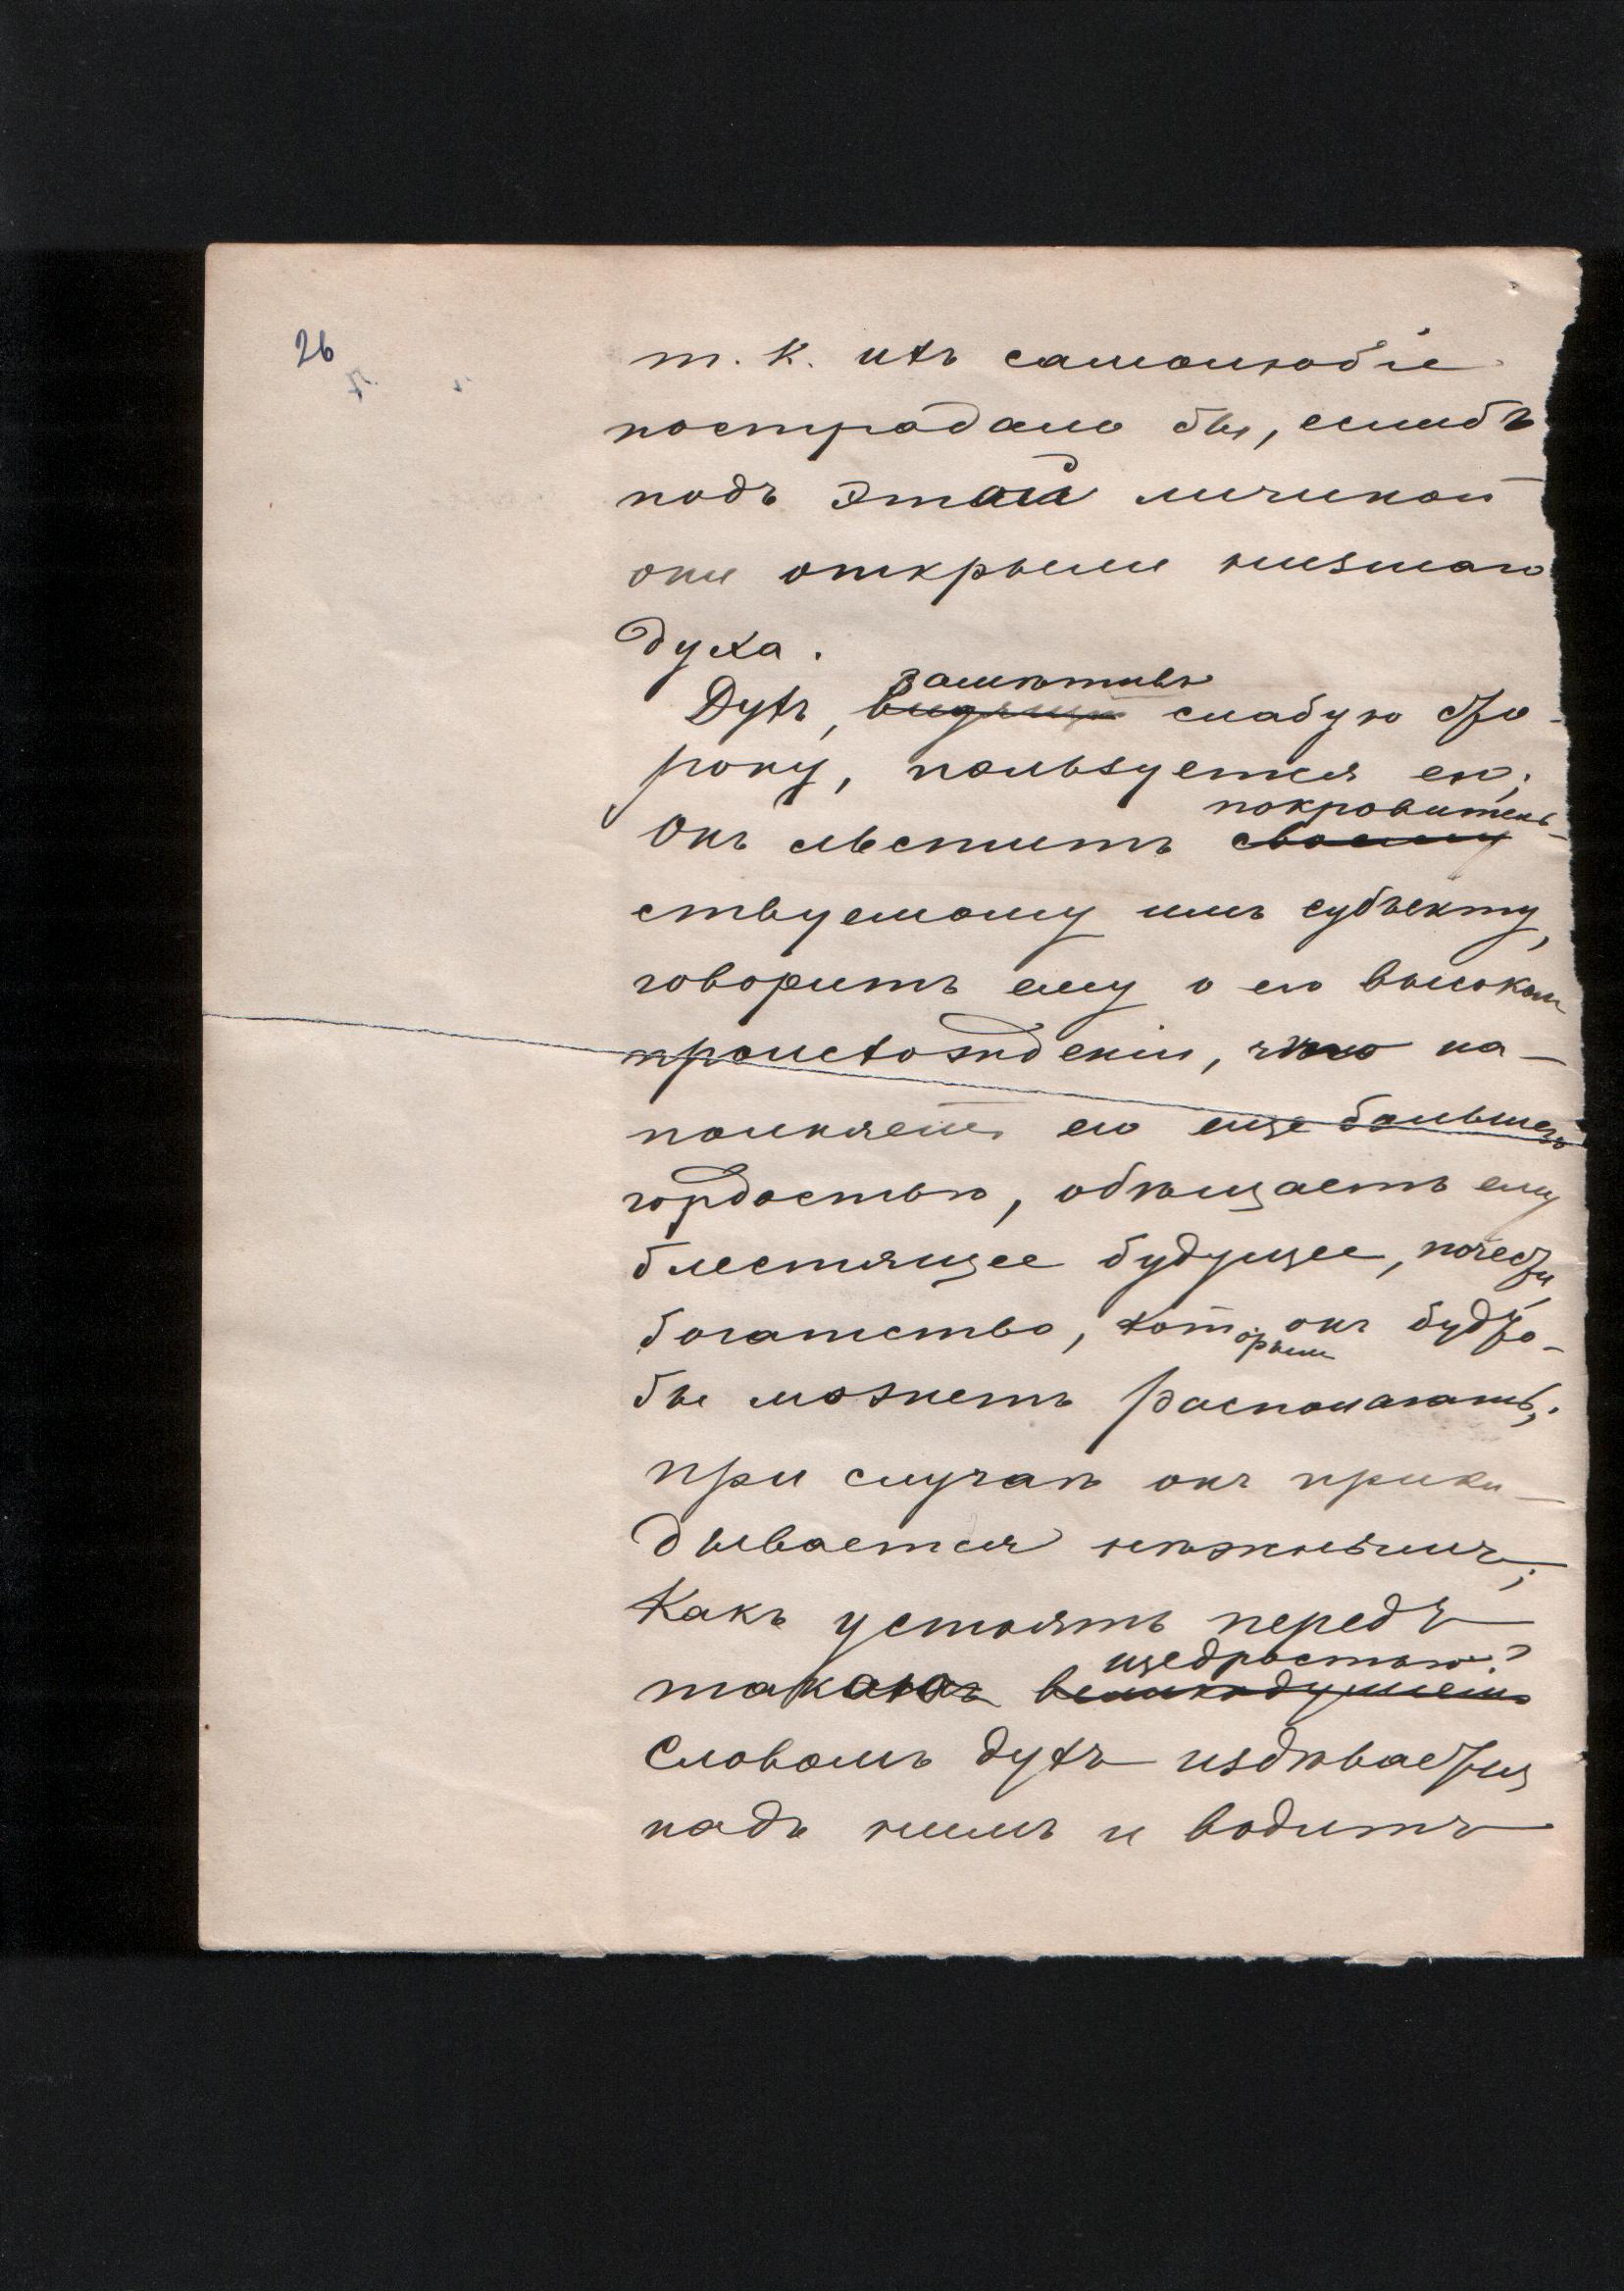 26
т. к. ихъ самолюбіе
пострадало бы, еслибъ
подъ этой личиной
они открыли низшаго
духа.
Духъ, замѣтивъ слабую сто-
рону, пользуется ею;
Онъ льститъ покровитель-
ствуемому имъ субъекту,
говоритъ ему о его высоком
происхожденіи, что на-
полняетъ его еще большею
гордостью, обѣщаетъ ему
блестящее будущее, почести,
богатство, которыми онъ будто-
бы можетъ располагать;
при случаѣ онъ прики-
дывается нѣжнымъ;
Какъ устоять передъ
такою щедростью?
Словомъ духъ издѣвается
надъ нимъ и водитъ